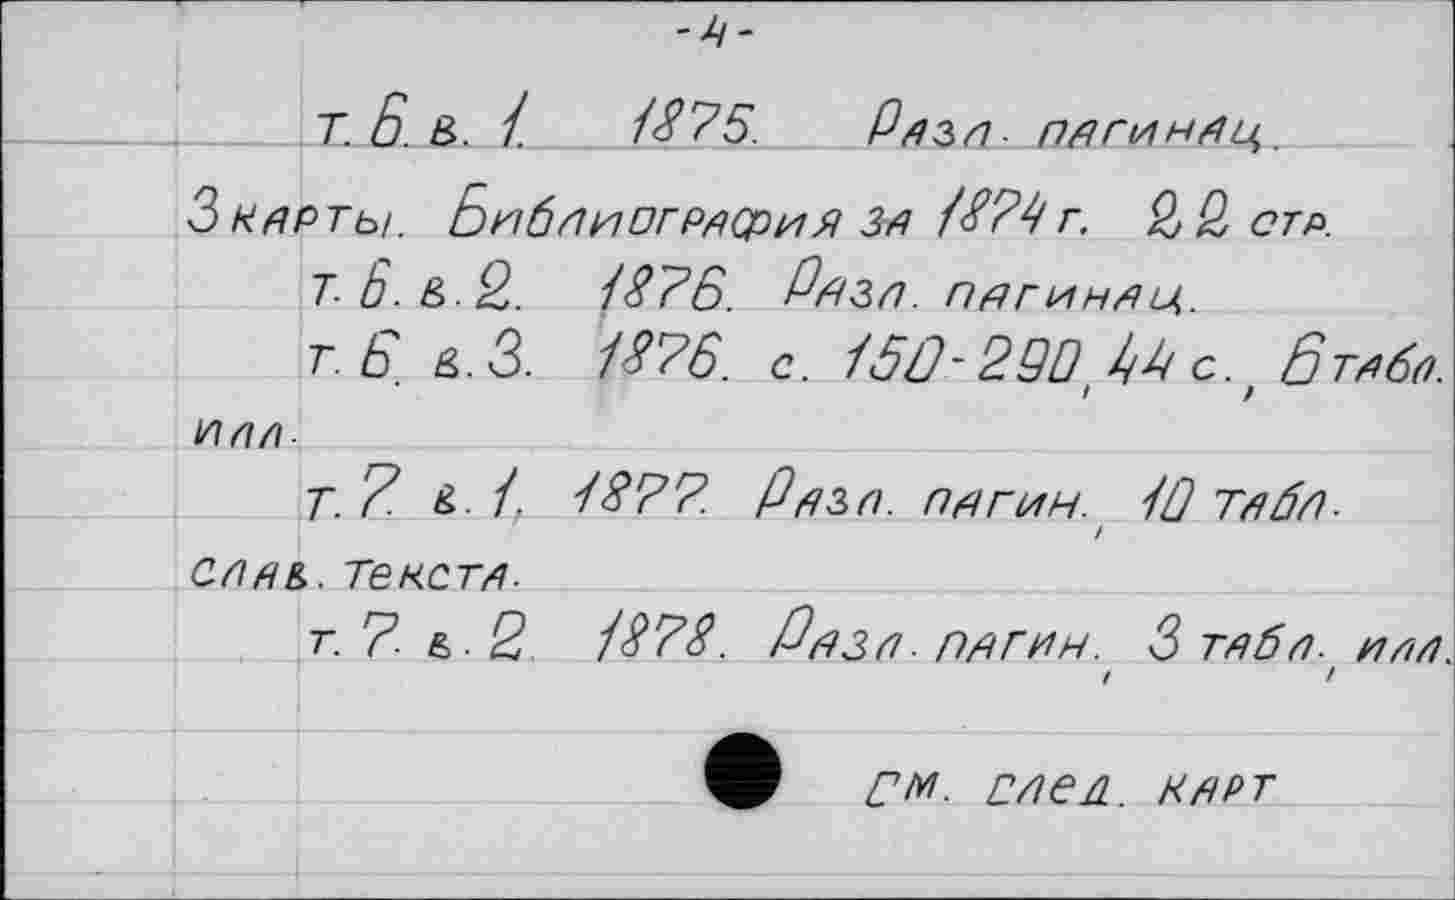 -4-
т. 6. в. 1. 1875. Разл. пагинац.
3 карты. Библиография за 1874 г. 22 стр.
т. 6. в. 2. 1876. Разл. пагинац.
т. 6. в. 3. 1876. с. 150-290, 44 с., 6 табл.
илл.
т. 7. в. 1. 1877. Разл. пагин., 10 табл.
слав. текста.
т. 7. в. 2. 1878. Разл. пагин., 3 табл., илл.
см. след. карт